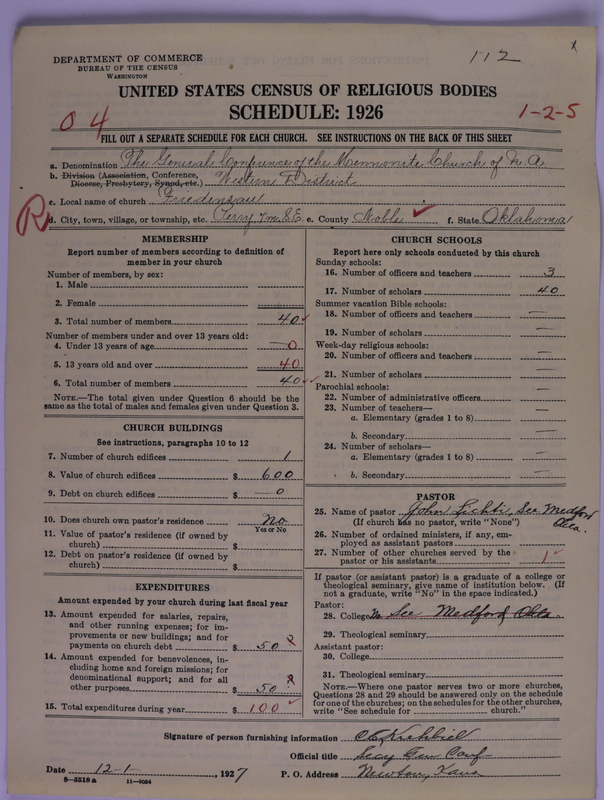 112
x
DEPARTMENT OF COMMERCE
BUREAU OF THE CENSUS
WASHINGTON
UNITED STATES CENSUS OF RELIGIOUS BODIES
SCHEDULE: 1926
04
1-2-5
FILL OUT A SEPARATE SCHEDULE FOR EACH CHURCH. SEE INSTRUCTIONS ON THE BACK OF THIS SHEET
a. Denomination The General Conference of the Mennonite Church of N. A
b. Division (Association, Conference, Diocese, Presbytery, Synod, etc.) Western District
c. Local name of church Friedensau
R
d. City, town, village, or township, etc. Perry 7 m. S.E. e. County Noble ✓ f. State Oklahoma
MEMBERSHIP
Report number of members according to definition of
member in your church
Number of members, by sex:
1. Male
2. Female
3. Total number of members 40 ✓
Number of members under and over 13 years old:
4. Under 13 years of age 0
5. 13 years old and over 40
6. Total number of members 40 ✓
NOTE.—The total given under Question 6 should be the
same as the total of males and females given under Question 3.
CHURCH BUILDINGS
See instructions, paragraphs 10 to 12
7. Number of church edifices 1
8. Value of church edifices $ 600
9. Debt on church edifices $ 0
10. Does church own pastor's residence No
Yes or No
11. Value of pastor's residence (if owned by
church) $
12. Debt on pastor's residence (if owned by
church) $
EXPENDITURES
Amount expended by your church during last fiscal year
13. Amount expended for salaries, repairs,
and other running expenses; for im-
provements or new buildings; and for
payments on church debt $ 50
14. Amount expended for benevolences, in-
cluding home and foreign missions; for
denominational support; and for all
other purposes $ 50
15. Total expenditures during year $ 100 ✓
CHURCH SCHOOLS
Report here only schools conducted by this church
Sunday schools:
16. Number of officers and teachers 3
17. Number of scholars 40
Summer vacation Bible schools:
18. Number of officers and teachers —
19. Number of scholars —
Week-day religious schools:
20. Number of officers and teachers —
21. Number of scholars —
Parochial schools:
22. Number of administrative officers —
23. Number of teachers—
a. Elementary (grades 1 to 8) —
b. Secondary —
24. Number of scholars—
a. Elementary (grades 1 to 8) —
b. Secondary —
PASTOR
25. Name of pastor John Lichti, See Medford
(If church has no pastor, write "None") Okla.
26. Number of ordained ministers, if any, em-
ployed as assistant pastors
27. Number of other churches served by the
pastor or his assistants 1
If pastor (or assistant pastor) is a graduate of a college or
theological seminary, give name of institution below. (If
not a graduate, write "No" in the space indicated.)
Pastor:
28. College No See Medford, Okla.
29. Theological seminary
Assistant pastor:
30. College
31. Theological seminary
NOTE.—Where one pastor serves two or more churches,
Questions 28 and 29 should be answered only on the schedule
for one of the churches; on the schedules for the other churches,
write "See schedule for church."
Signature of person furnishing information C E Krehbiel
Official title Secy Gen Conf
Date 12-1, 1927 P. O. Address Newton, Kans
8—5518 a 11—9064